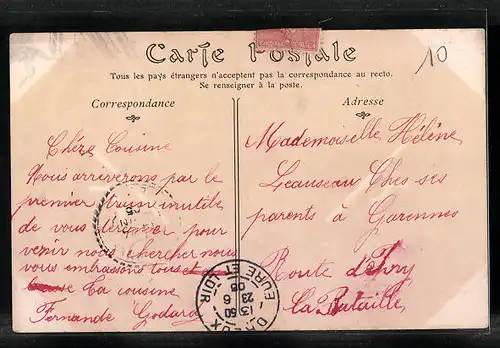 10
Carte Postale
Tous les pays étrangers n'acceptent pas la correspondance au recto.
Se renseigner à la poste.
Correspondance
Adresse
Chère Cousine
Nous arriverons par le
premier train inutile
de vous pour
venir nous chercher nous
vous embrassons tous
ta cousine
Fernande Godard
Mademoiselle Hélène
Leauseau Ches ses
parents à Garennes
Route d'Ivry
la Bataille,
DREUX
EURE ET LOIR
13 50
23 6
06